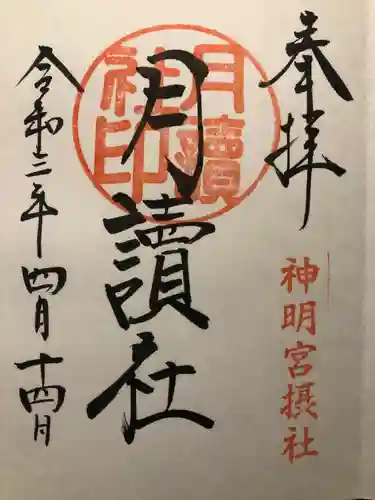 奉拝
神明宮摂社
月讀社
月讀社印
令和三年四月十四日